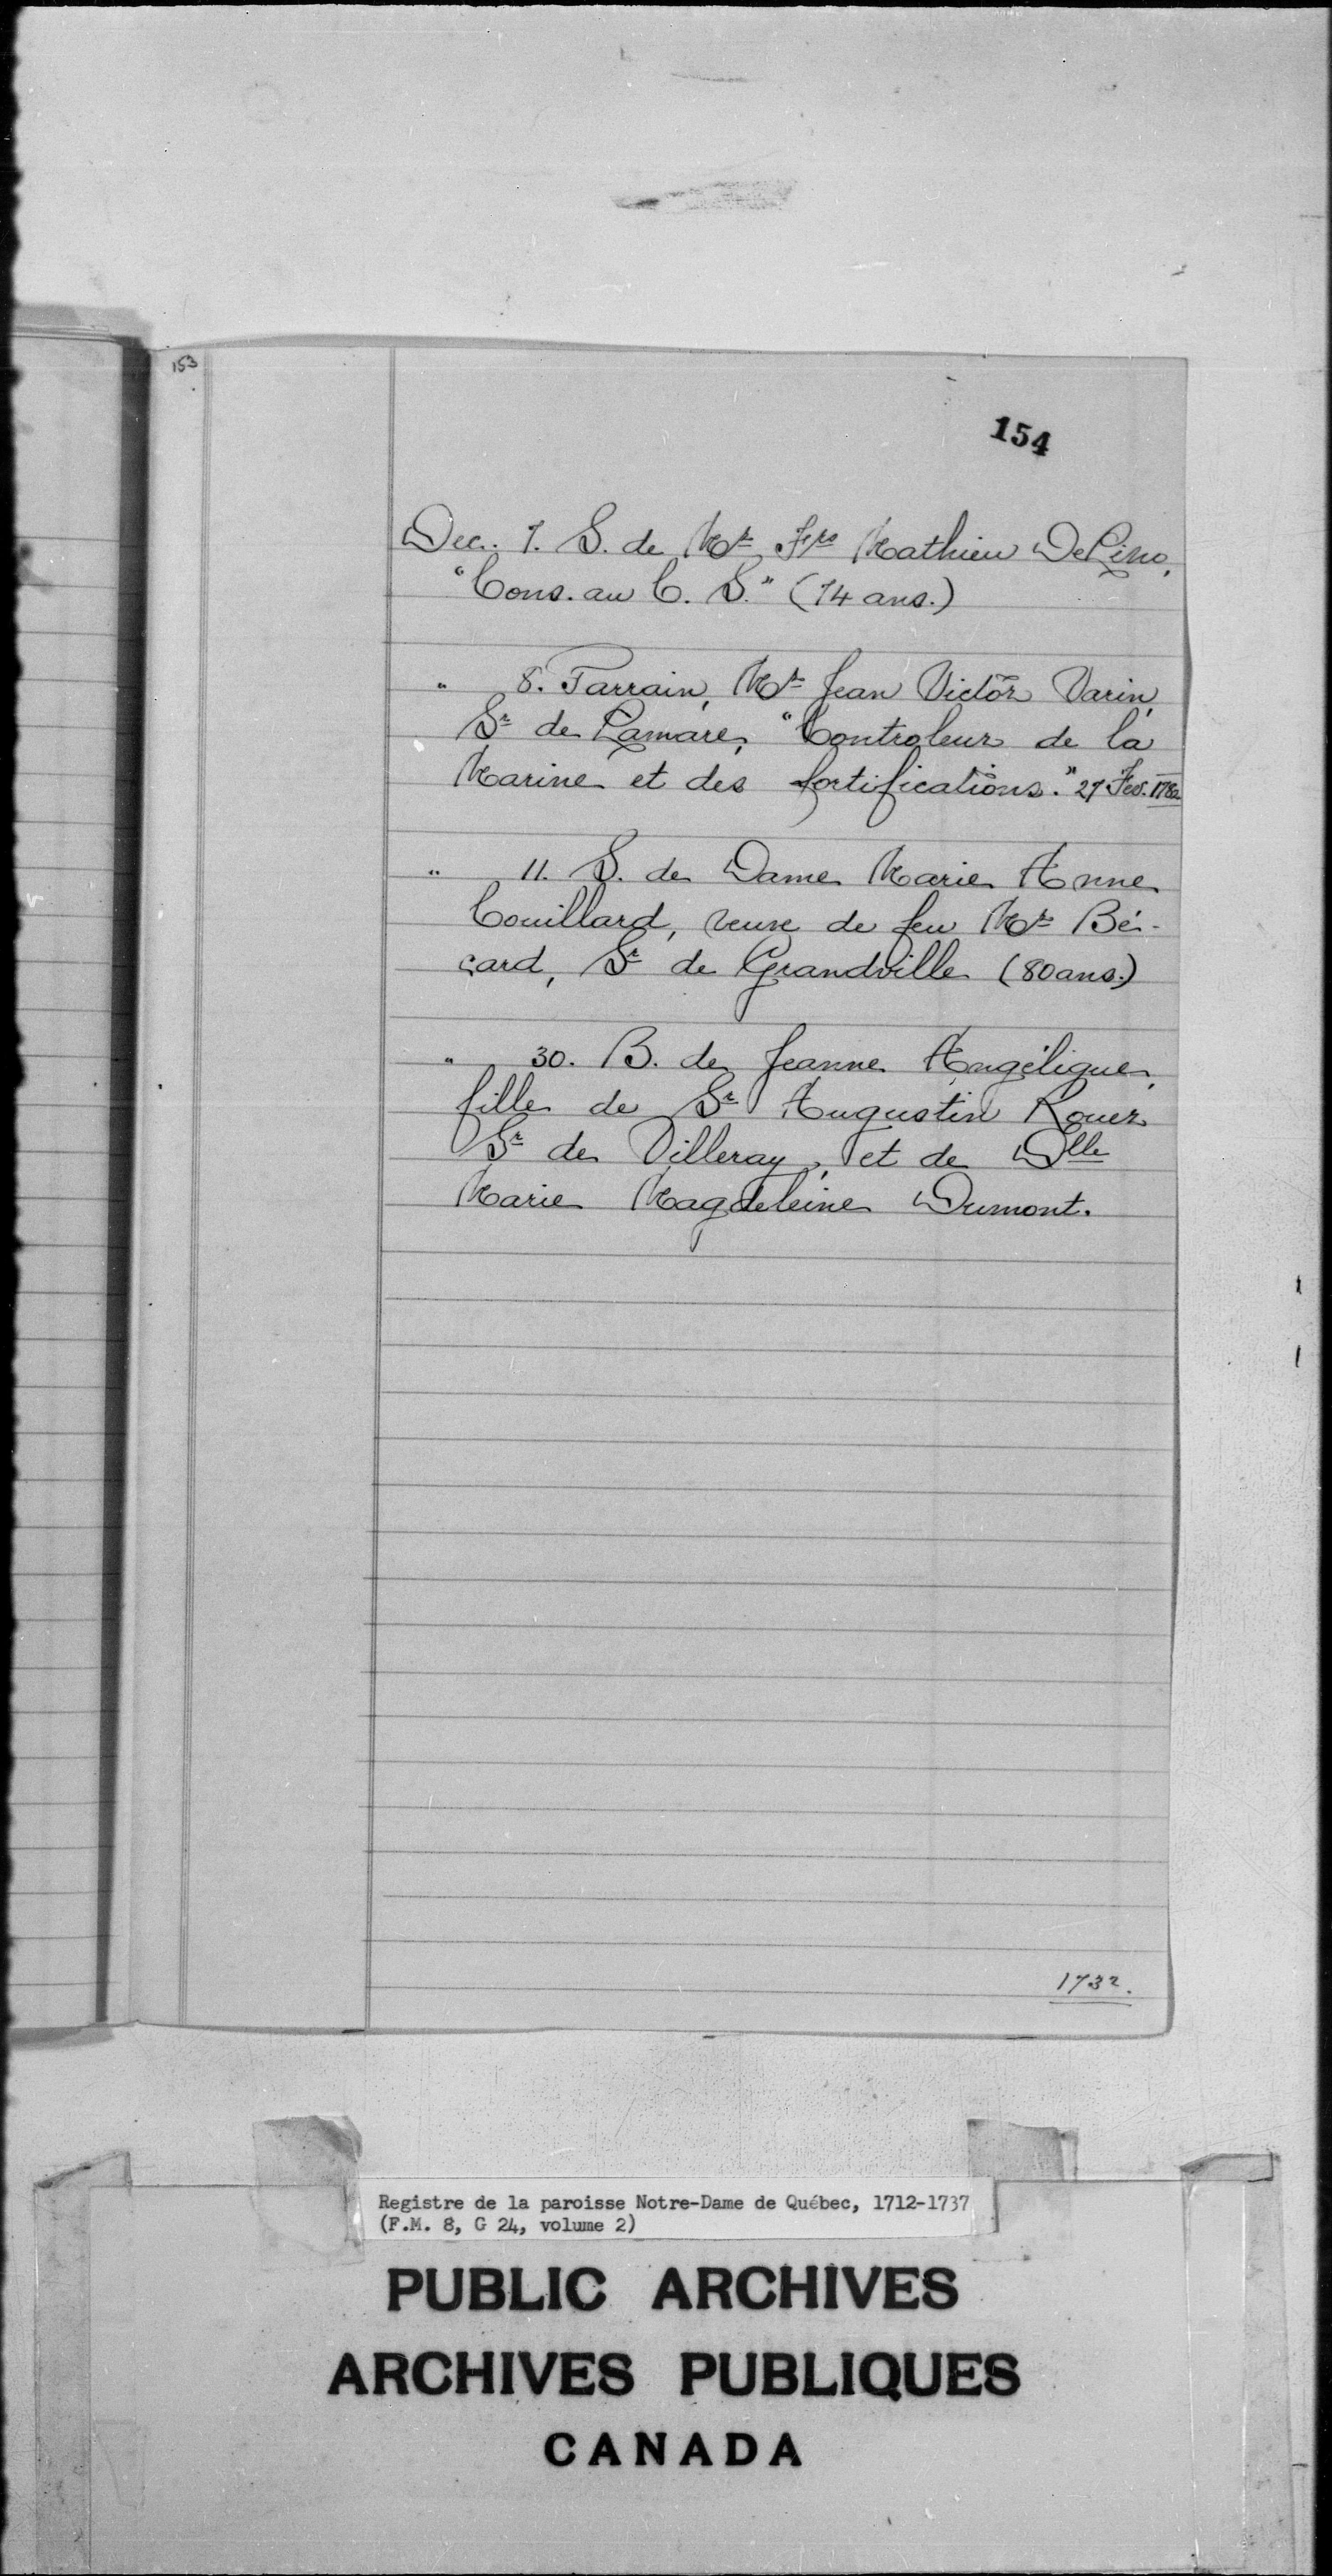 153
154
Dec. 7. S. de Mr Frs Mathieu DeLino,
"Cons. au C. S." (74 ans.)
" 8. Parrain, Mr Jean Victor Varin,
Sr de Lamare, "Controleur de la
Marine et des fortifications." 27 Fev. 1782
" 11. S. de Dame Marie Anne
Couillard, veuve de feu Mr Bé-
card, Sr de Grandville (80 ans.)
" 30. B. de Jeanne Angélique,
fille de Sr Augustin Rouer
Sr de Villeray, et de Dlle
Marie Magdeleine Dumont.
1732.
Registre de la paroisse Notre-Dame de Québec, 1712-1737
(F.M. 8, G 24, volume 2)
PUBLIC ARCHIVES
ARCHIVES PUBLIQUES
CANADA